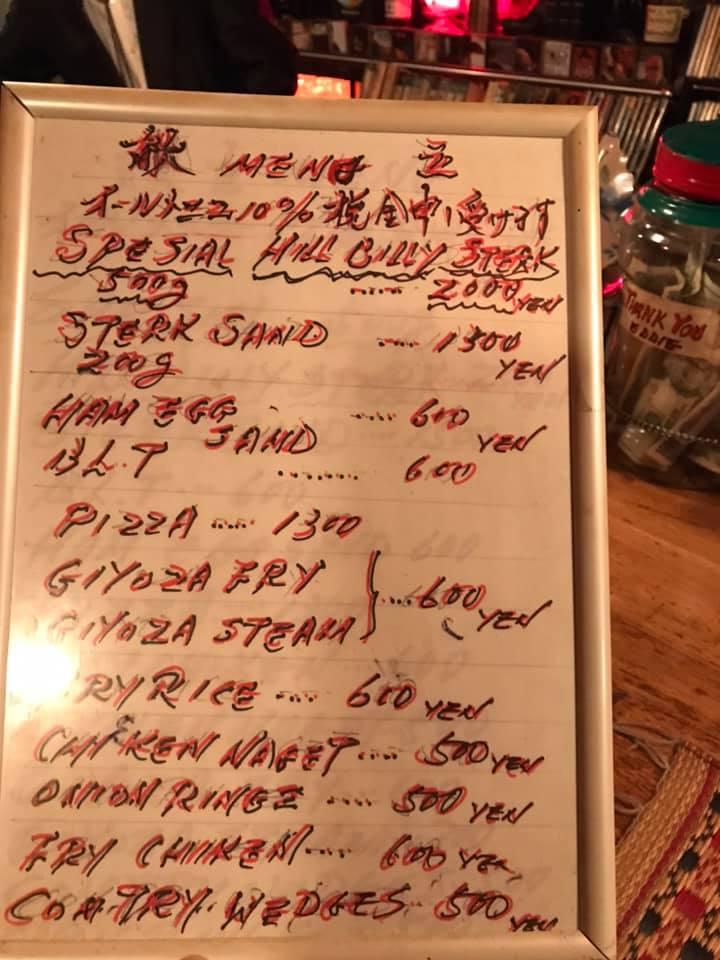 献 MENU 立
オールメニュー10%税金申し受けます
SPESIAL HILL BILLY STERK
500g ..... 2000 YEN
STERK SAND .... 1300
200g YEN
HAM EGG .... 600
SAND YEN
B.L.T ....... 600
PIZZA .... 1300
GIYOZA FRY
....600 YEN
GIYOZA STEAM
FRY RICE .... 600 YEN
CHIKEN NAGET .... 500 YEN
ONION RINGE .... 500 YEN
FRY CHIKEN .... 600 YEN
COM.TRY.WEDGES 500 YEN
THANK YOU
EDDIE